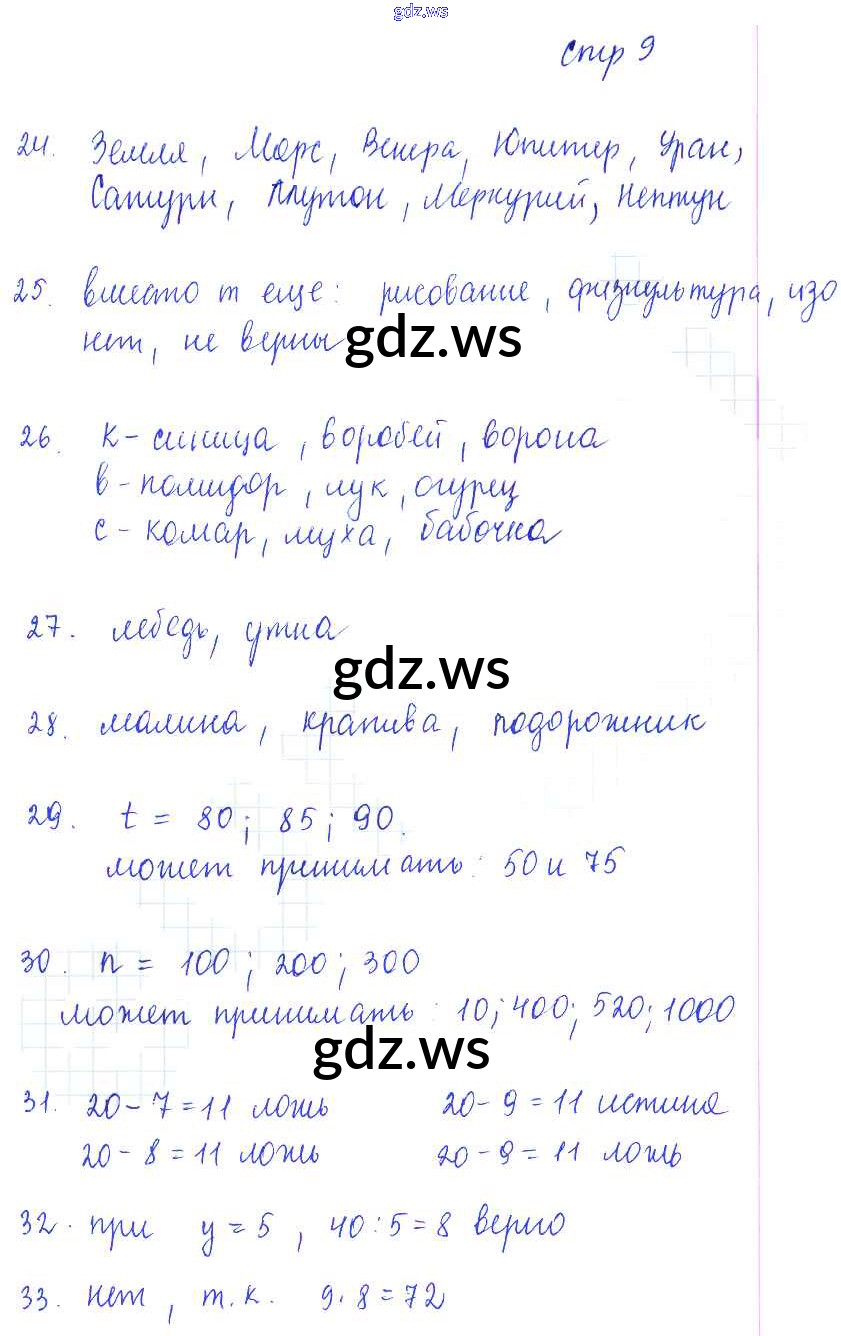 gdz.ws
стр 9
24. Земля, Марс, Венера, Юпитер, Уран,
Сатурн, Плутон, Меркурий, Нептун
25. вместо т еще: рисование, физкультура, изо
нет, не верны
gdz.ws
26. к - синица, воробей, ворона
в - помидор, лук, огурец
с - комар, муха, бабочка
27. лебедь, утка
gdz.ws
28. малина, крапива, подорожник
29. t = 80; 85; 90.
может принимать: 50 и 75
30. n = 100; 200; 300
может принимать: 10; 400; 520; 1000
gdz.ws
31. 20 - 7 = 11 ложь 20 - 9 = 11 истина
20 - 8 = 11 ложь 20 - 9 = 11 ложь
32. при y = 5, 40 : 5 = 8 верно
33. нет, т.к. 9 · 8 = 72